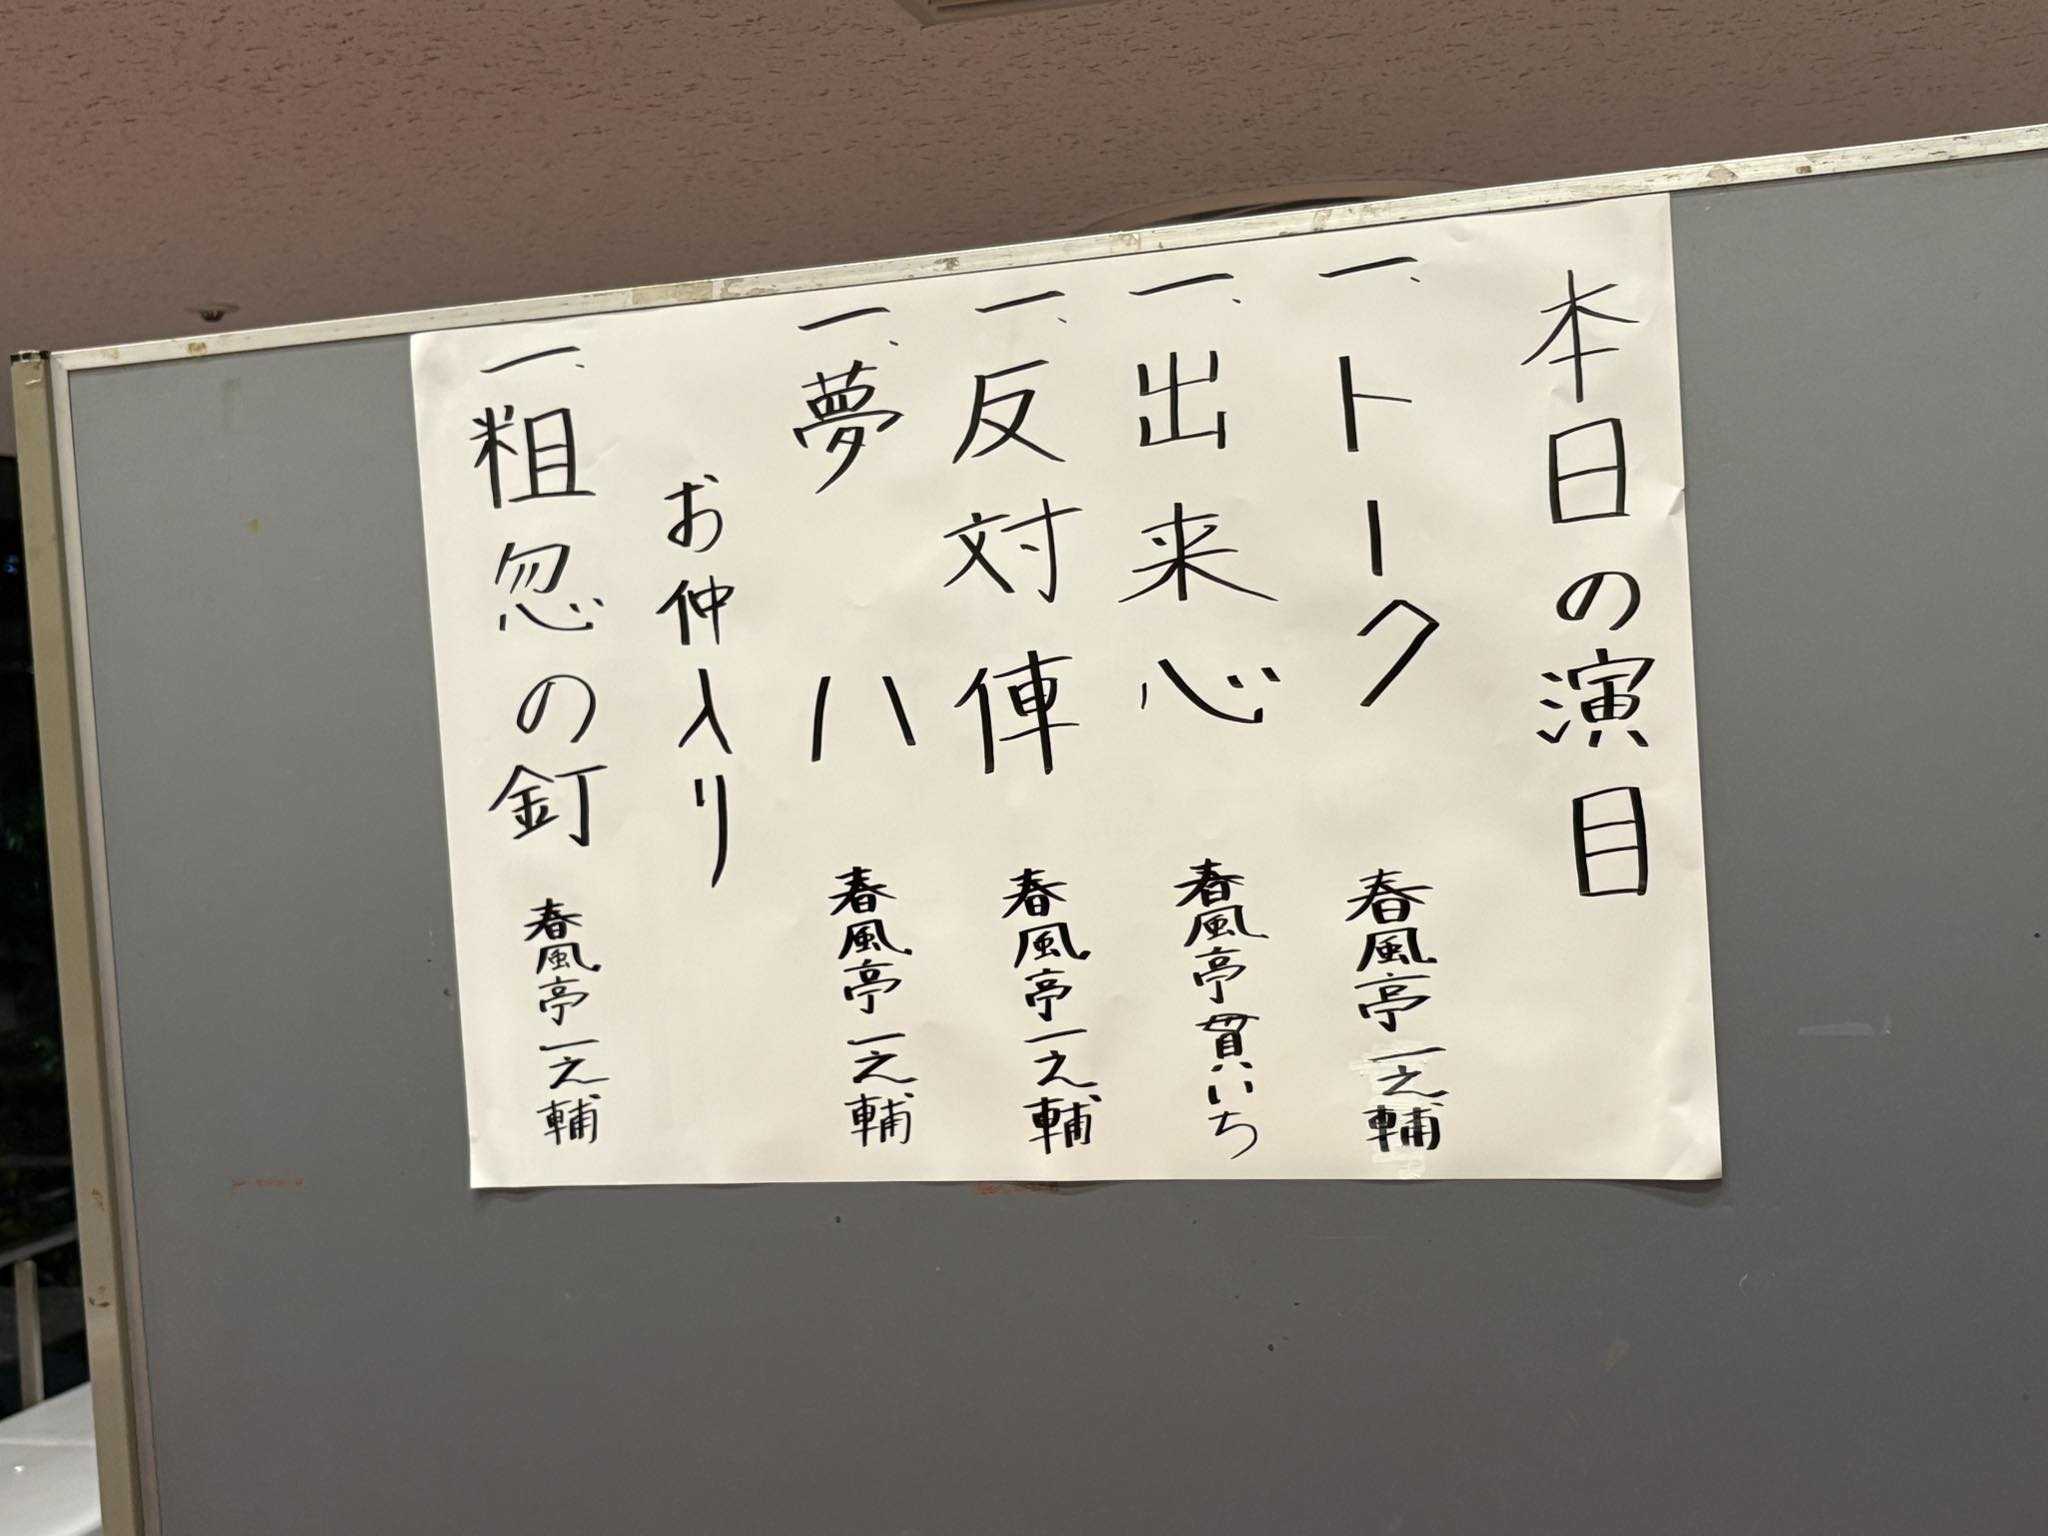 本日の演目
一、トーク 春風亭一之輔
一、出来心 春風亭貫いち
一、反対俥 春風亭一之輔
一、夢八 春風亭一之輔
お仲入り
一、粗忽の釘 春風亭一之輔